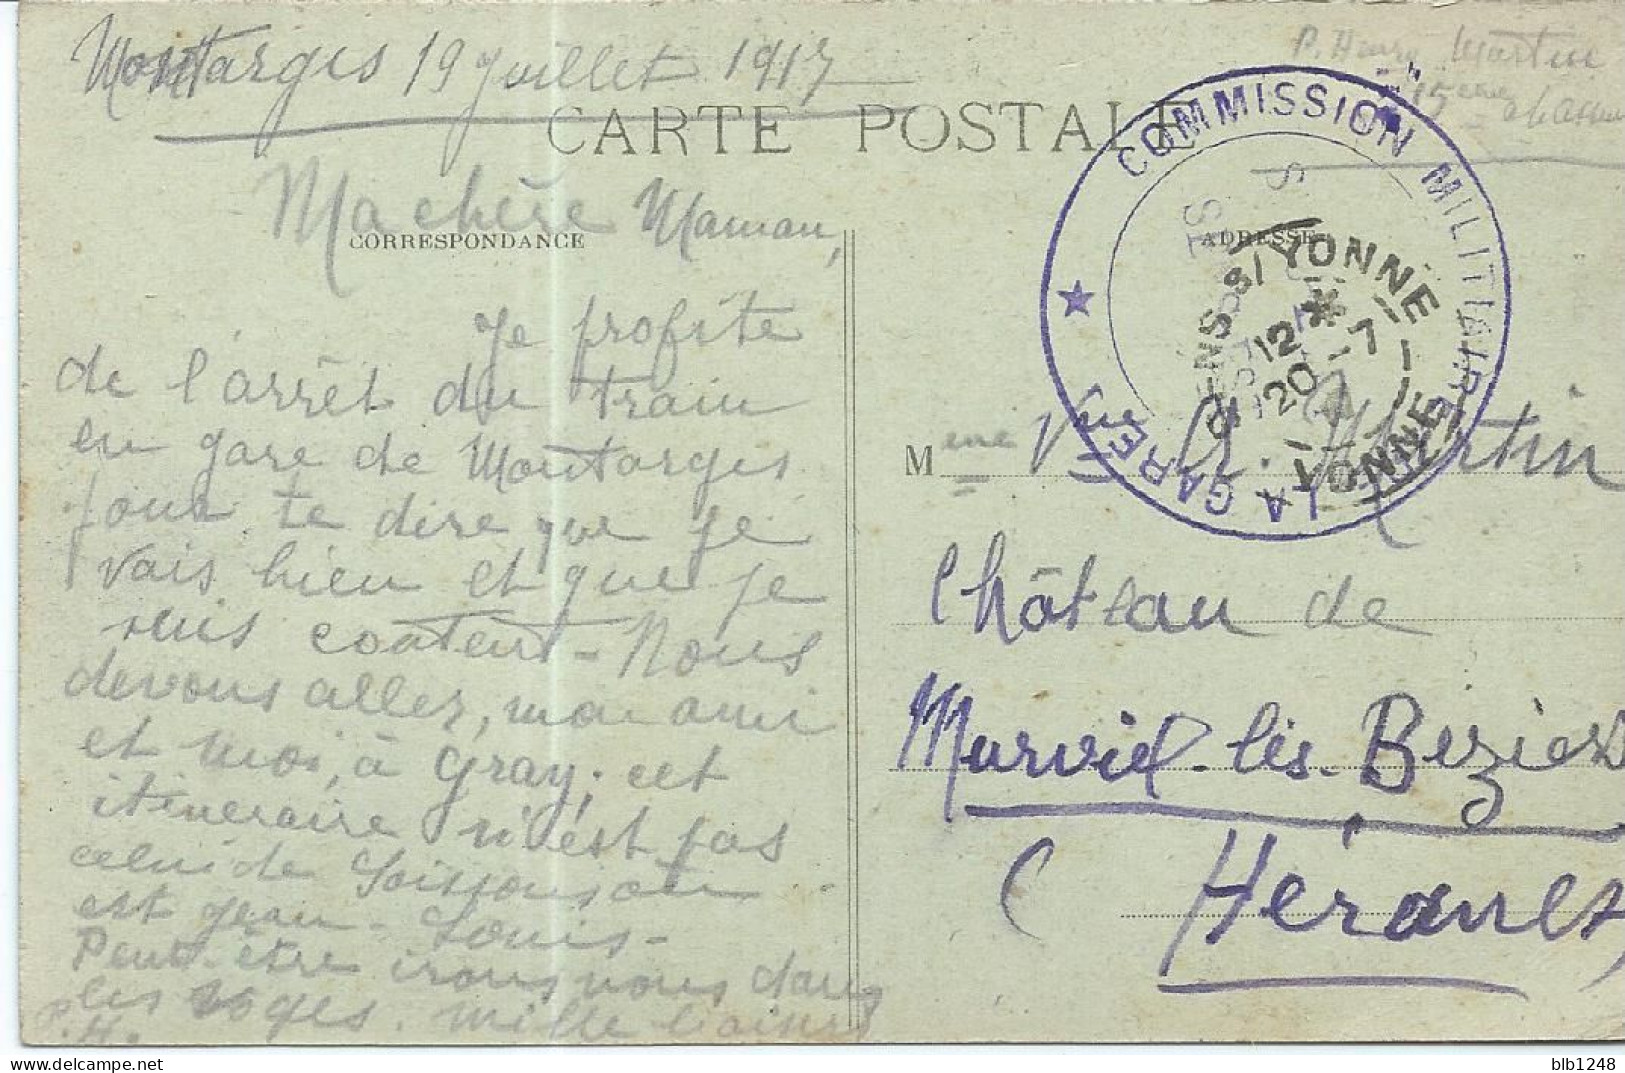 Montargis 19 Juillet 1917
P. Henry Martin
15eme chasseurs
CARTE POSTALE
Ma chère Maman,
CORRESPONDANCE
ADRESSE
COMMISSION MILITAIRE
LA GARE
SENS S/YONNE
12 *
20 - 7
YONNE
Je profite
de l'arrêt du train
en gare de Montargis
pour te dire que je
vais bien et que je
suis content - Nous
devons aller, mon ami
et moi, à Gray; cet
itinéraire n'est pas
celui de Soissons où
est Jean-Louis -
Peut-être irons nous dans
les Vosges. Mille baisers
P. H.
Meme Martin
Château de
Murviel-lès-Beziers
(Hérault
blb1248